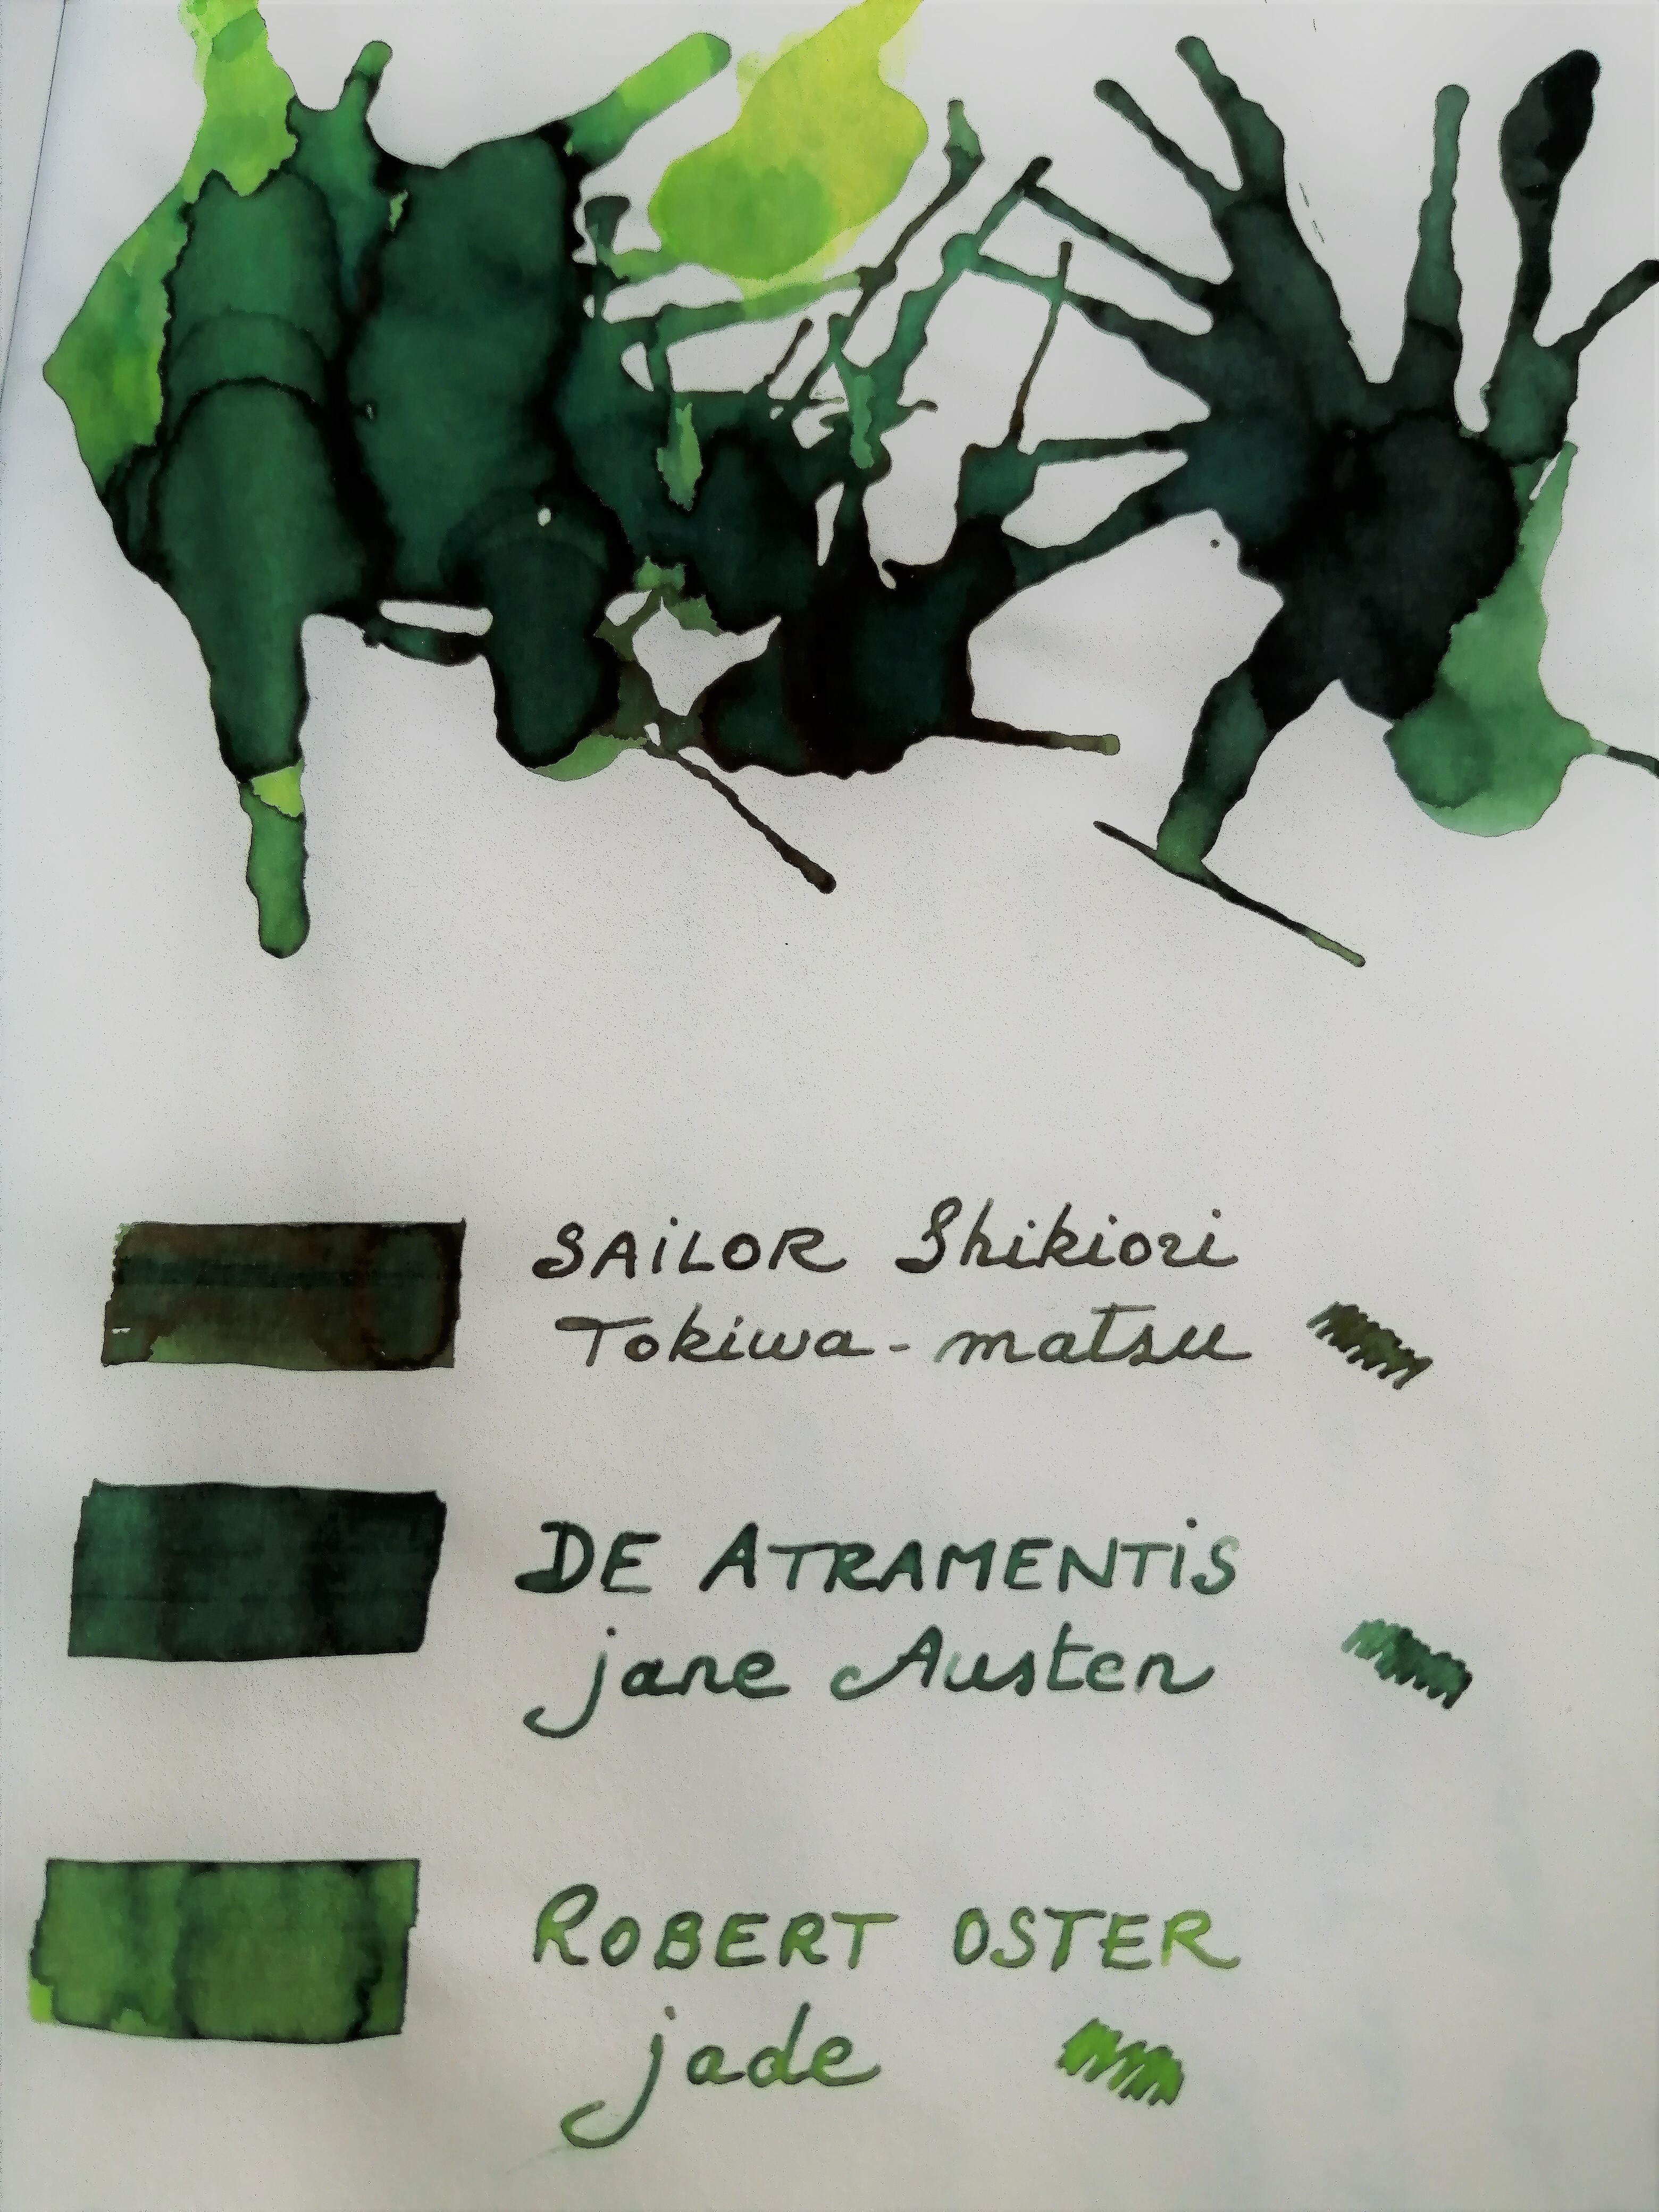 SAiLOR Shikiori
Tokiwa-matsu
DE ATRAMENTiS
jane Austen
ROBERT OSTER
jade